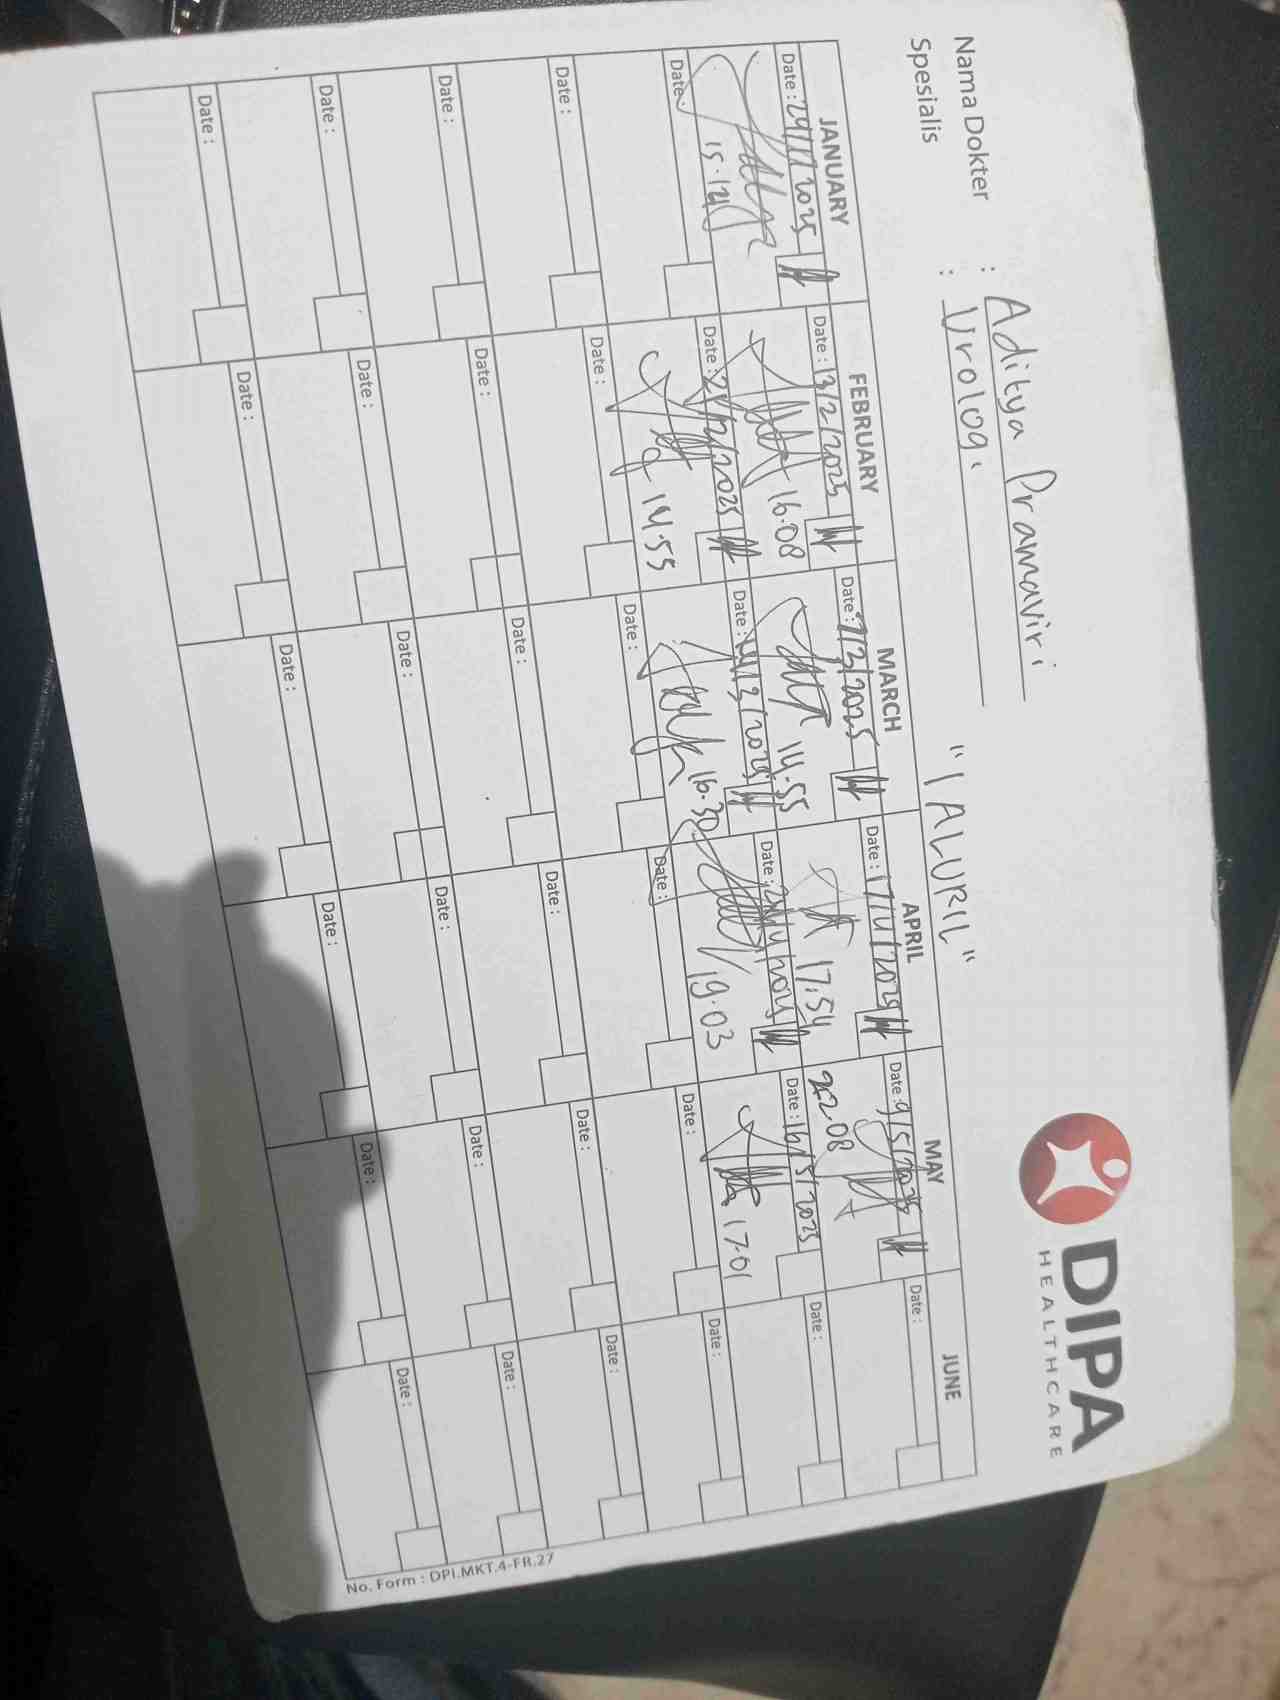 DIPA
HEALTHCARE
Nama Dokter : Aditya Pramaviri
Spesialis : Urologi
"1 ALURIL"
JANUARY FEBRUARY MARCH APRIL MAY JUNE
Date : 24/1/2025 Date : 13/2/2025 Date : 7/3/2025 Date : 17/4/2025 Date : 9/5/2025 Date :
15.12 16.08 14.55 17.54 22.08
Date : Date : 21/2/2025 Date : 14/3/2025 Date : Date : 16/5/2025 Date :
14.55 16.30 19.03 17.01
Date : Date : Date : Date : Date : Date :
Date : Date : Date : Date : Date : Date :
Date : Date : Date : Date : Date : Date :
Date : Date : Date : Date : Date : Date :
No. Form : DPI.MKT.4-FR.27